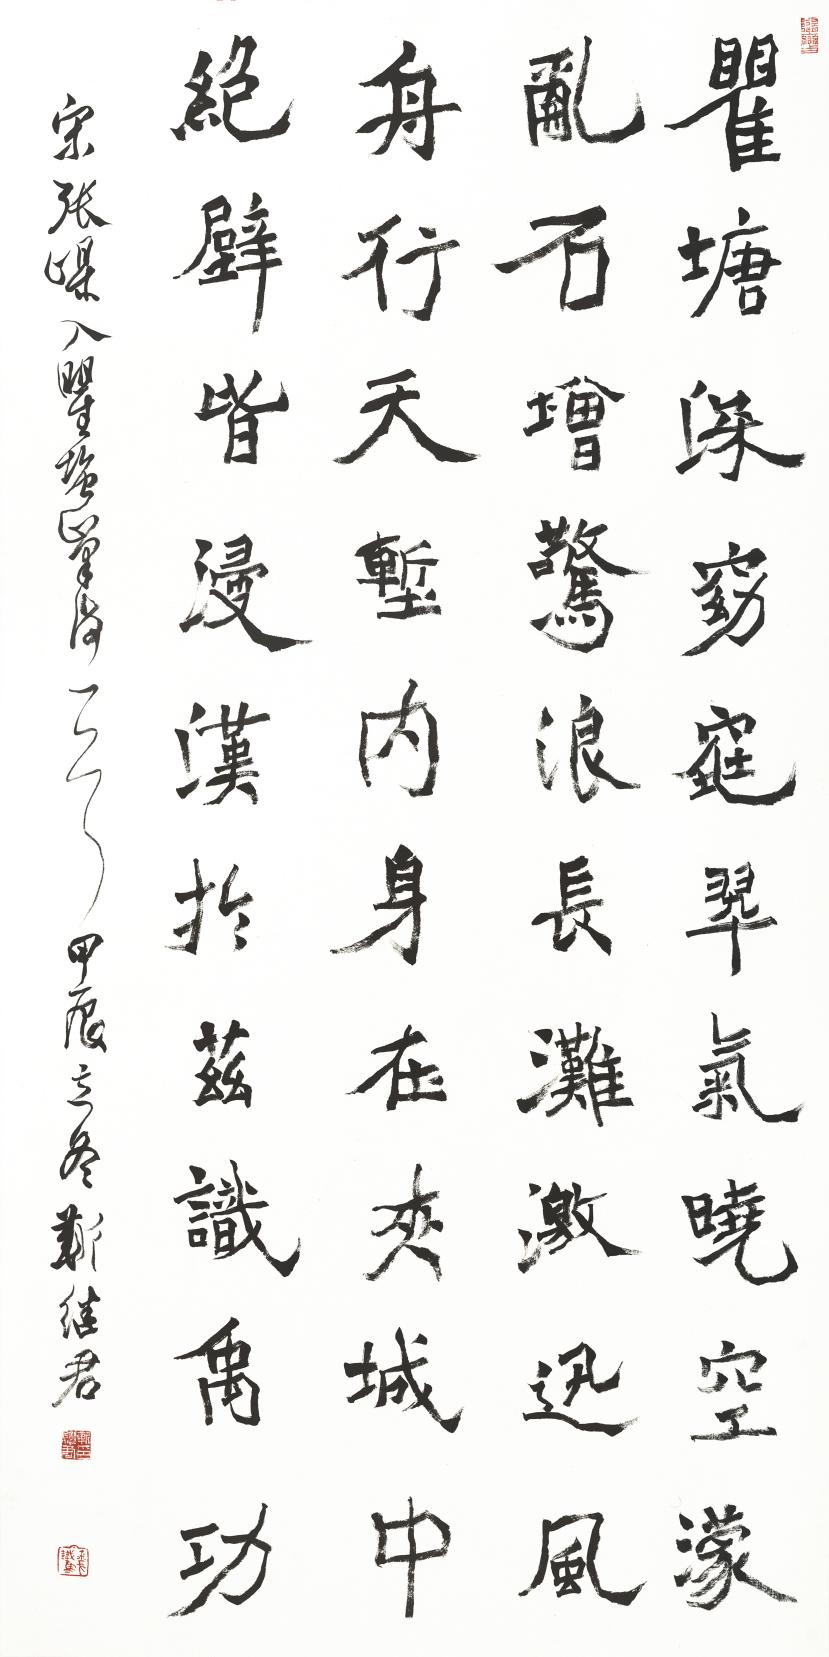 瞿塘深窈窕翠氣曉空濛
亂石增驚浪長灘激迅風
舟行天塹内身在夾城中
絕壁皆漫漢於茲識禹功
宋張嵲入瞿塘 甲辰立冬靳继君